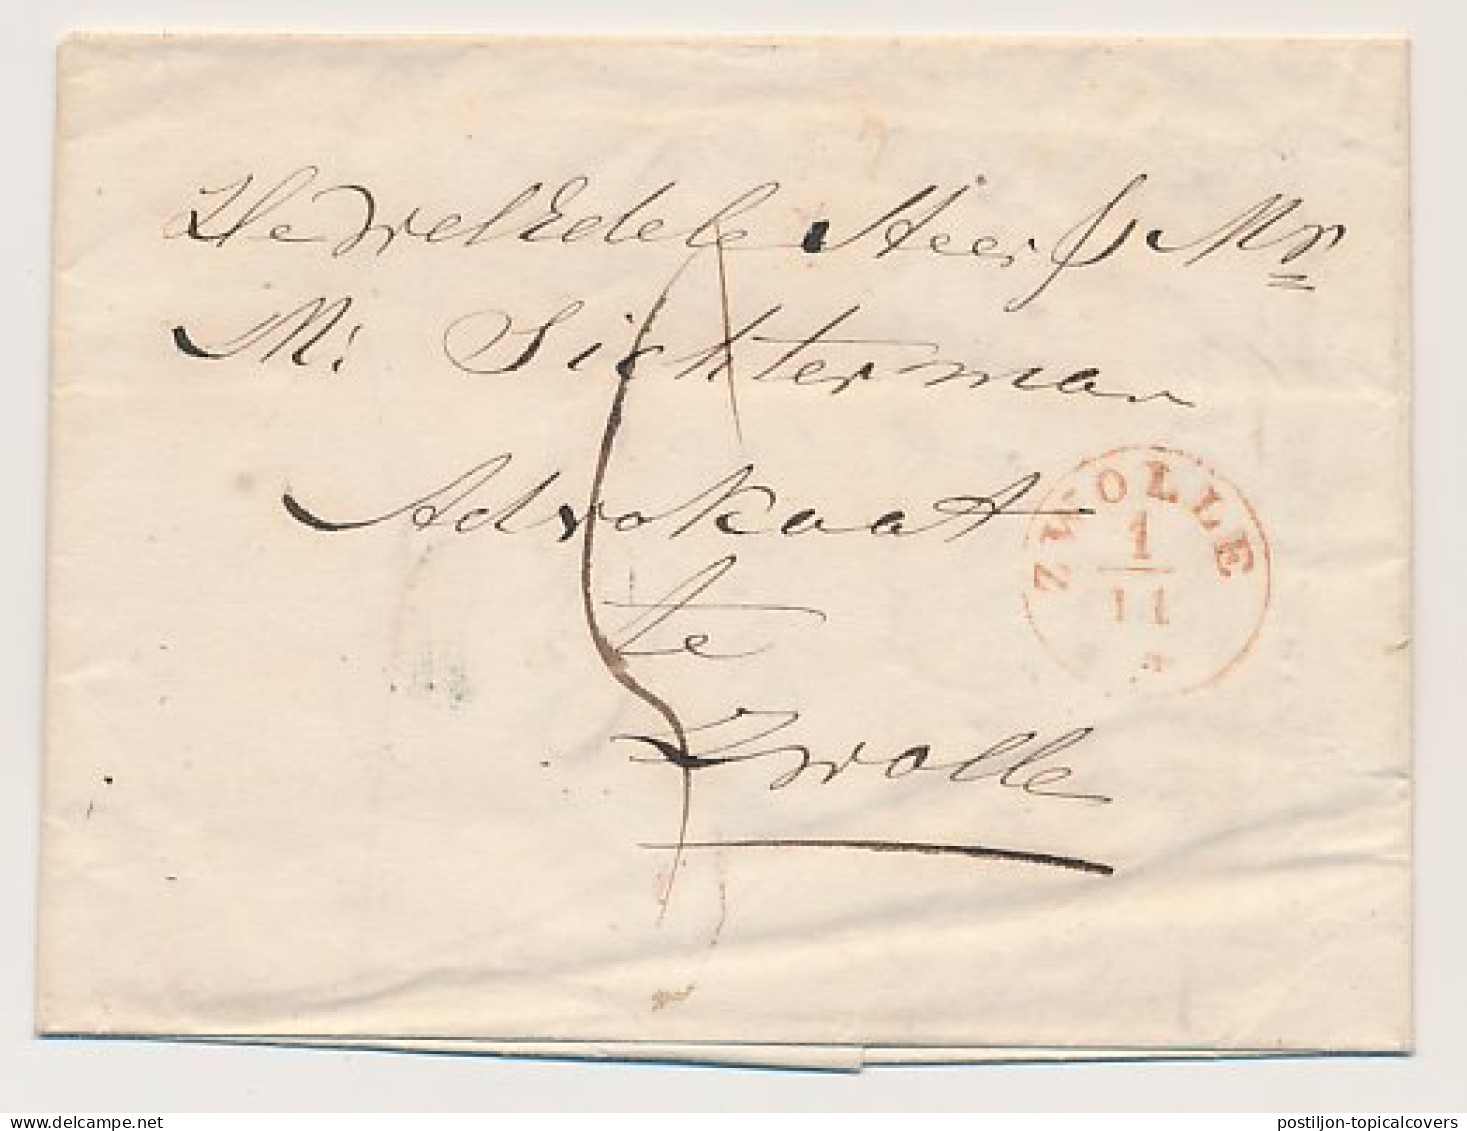 De WelEdele Heer
Mr
M: Sichterman
Advokaat
te
Zwolle
ZWOLLE
1
11
postiljon-topicalcovers